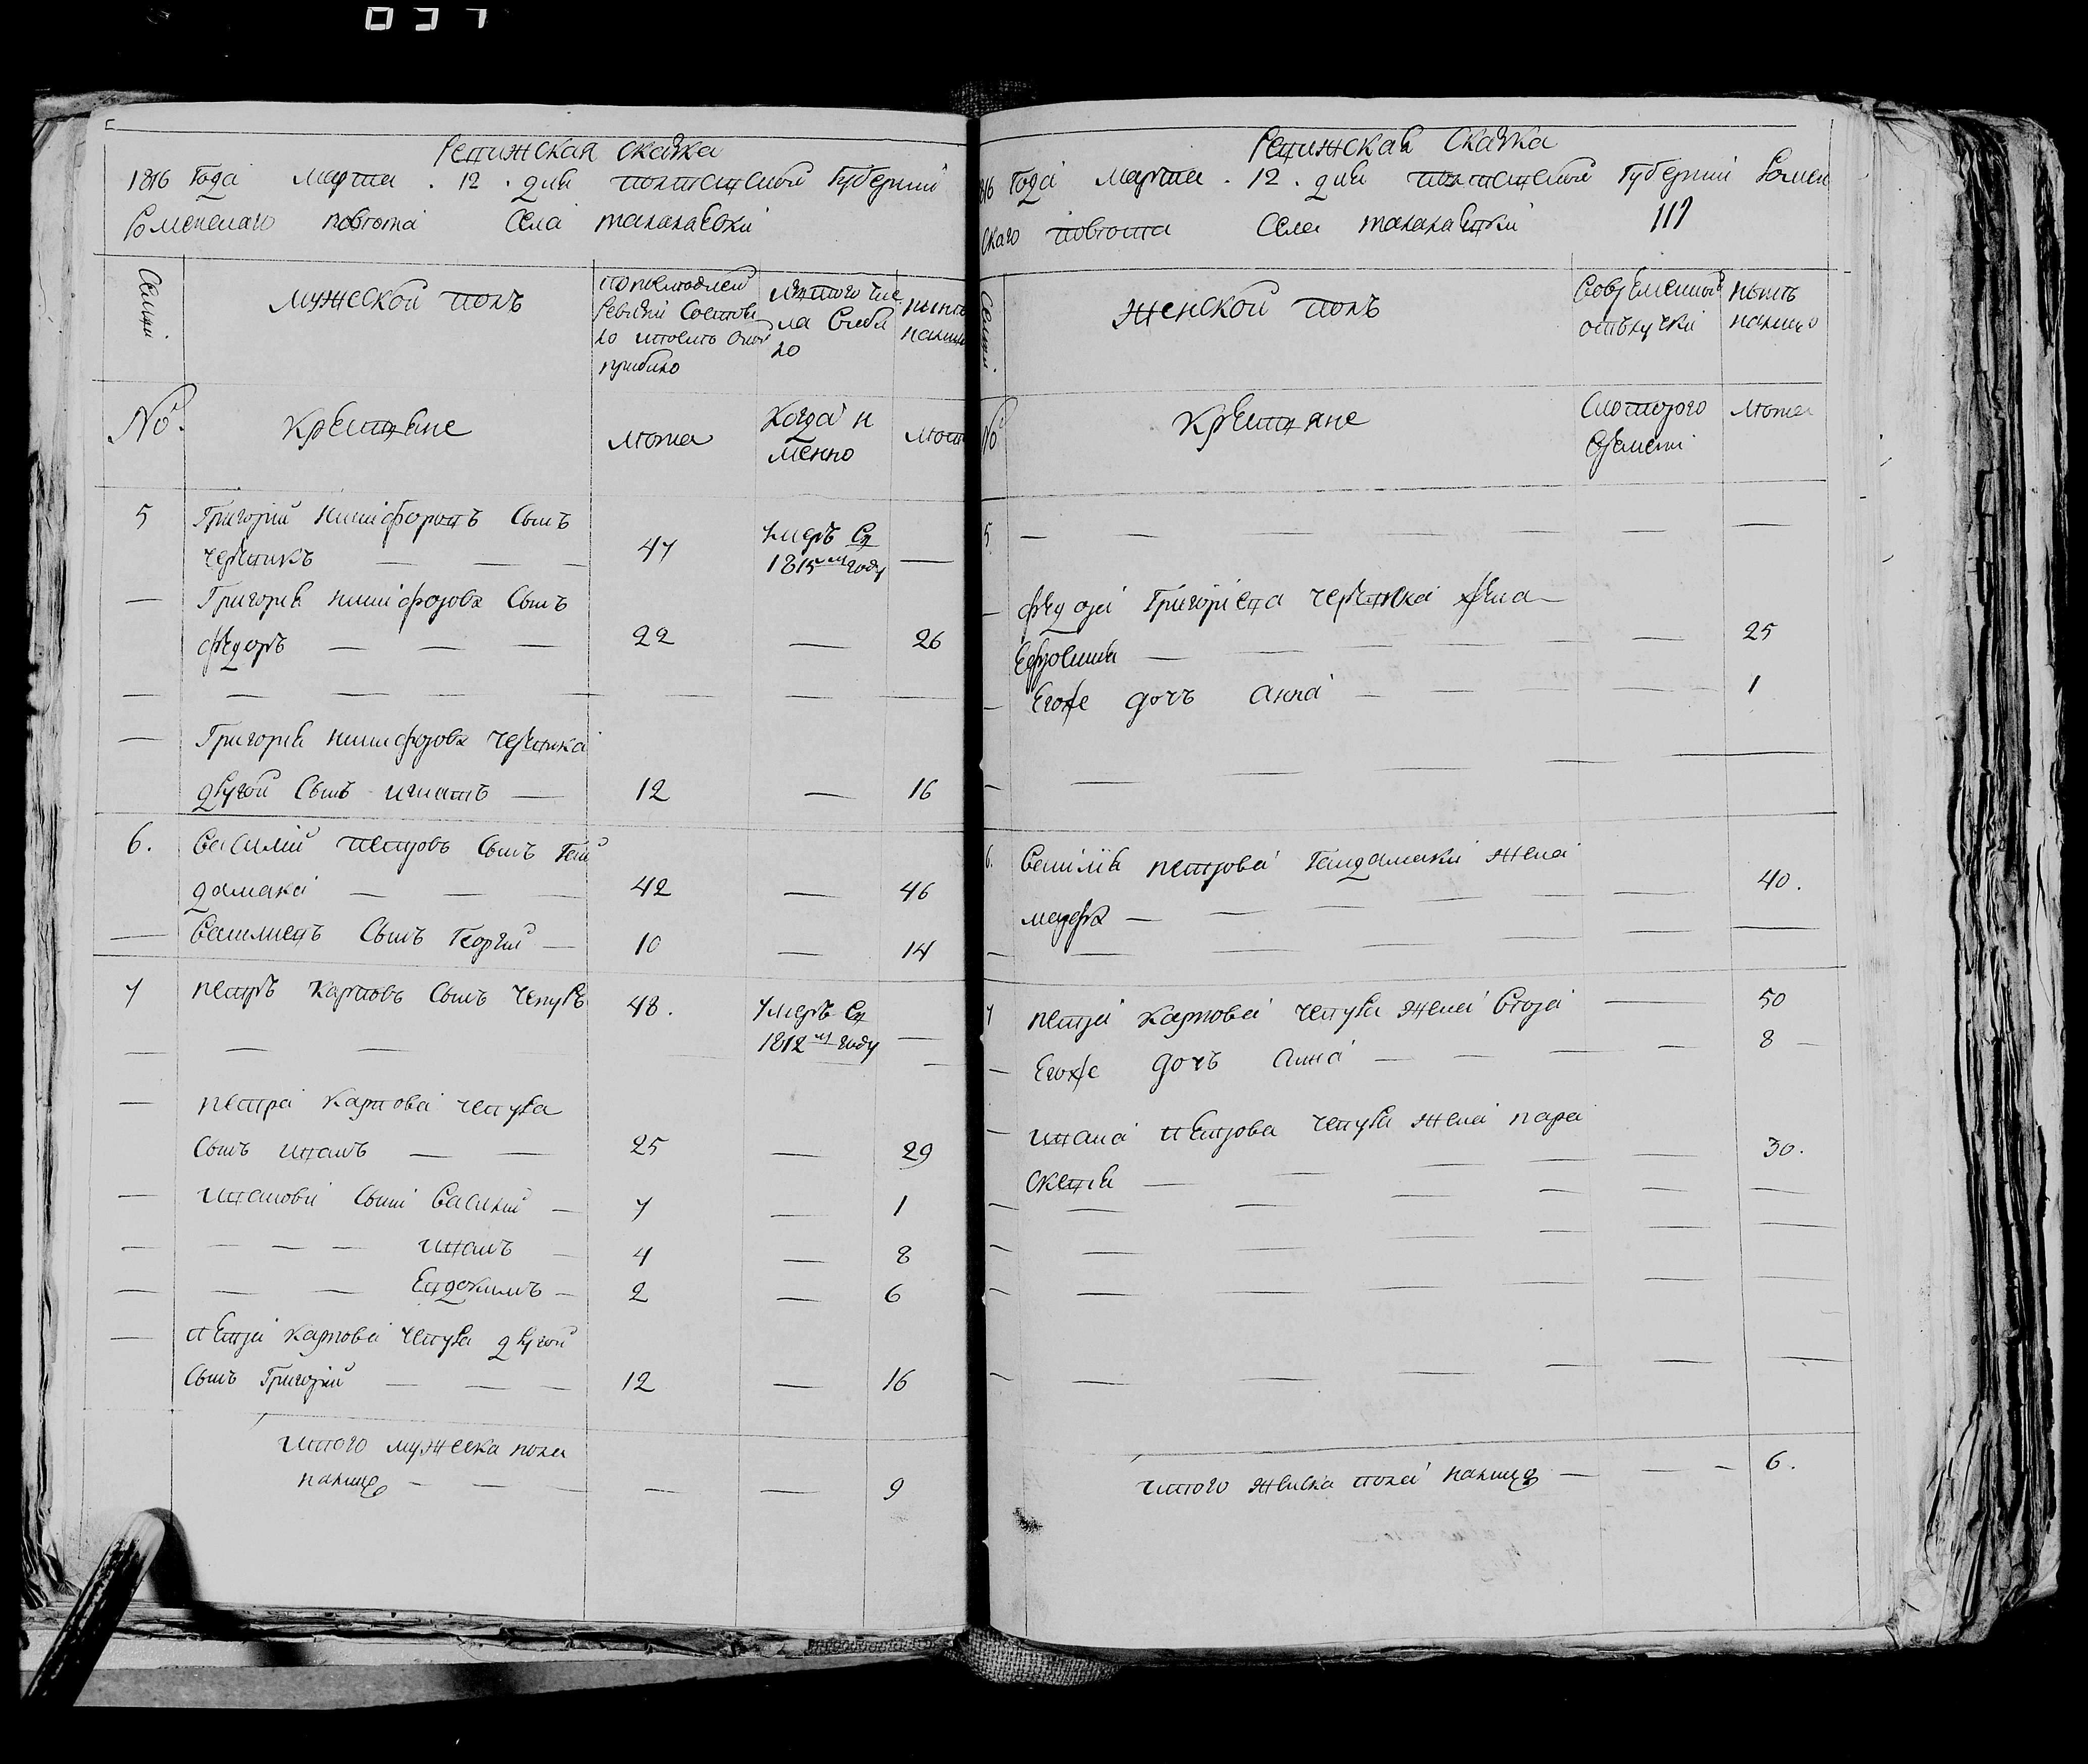 Ревижская скажка
1816 года марта . 12 . дня полтавской губернии
Роменскаго повѣта села талалаевки
Семьи.
мужеской полъ
по последней ревизій состояло
и того чис
ла выбы
ло
ныне
налицо
№.
крестяне
лѣта
когда и
менно
лѣта
5 Григорій никифоровъ сынъ
червякъ — — — 47 умеръ въ
1815м году —
— Григория никифорова сынъ
федоръ — — — 22 — 26
— — — — — — —
— Григория никифорова червяка
другой сынъ игнатъ — 12 — 16
6. василій петровъ сынъ гай
дамака — — — 42 — 46
— василиевъ сынъ георгий — 10 — 14
7 петръ карповъ сынъ чепурь 48. умеръ въ
— — — 1812м году —
— петра карпова чепура
сынъ иванъ — — 25 — 29
— ивановы сыни василий — 7 — 1
— — — — иванъ — 4 — 8
— — — — Евдокимъ — 2 — 6
— петра карпова чепура другой
сынъ Григорий — — — 12 — 16
итого мужеска пола
налицо — — — — — 9
Ревижская скажка
1816 года марта . 12 . дня полтавской губернии Ромен
скаго повѣта села талалаевки 117
Семьи.
женской полъ
вовременной
отлучки
ныне
налицо
№
крестяне
скоторого
времени
лѣта
5 — — — — — —
— федора Григориева червяка жена
Ефросиния — — — — — 25
— Егоже дочъ анна — — — 1
— — — — — — —
6. василия петрова гайдамаки жена
марфа — — — — — 40.
— — — — — — —
7 петра карпова чепура жена втора — 50
— Егоже дочъ анна — — — — 8 —
— ивана петрова чепура жена пара
скевия — — — — — 30.
— — — — — — —
— — — — — — —
— — — — — — —
— — — — — — —
итого женска пола налицо — — — 6.